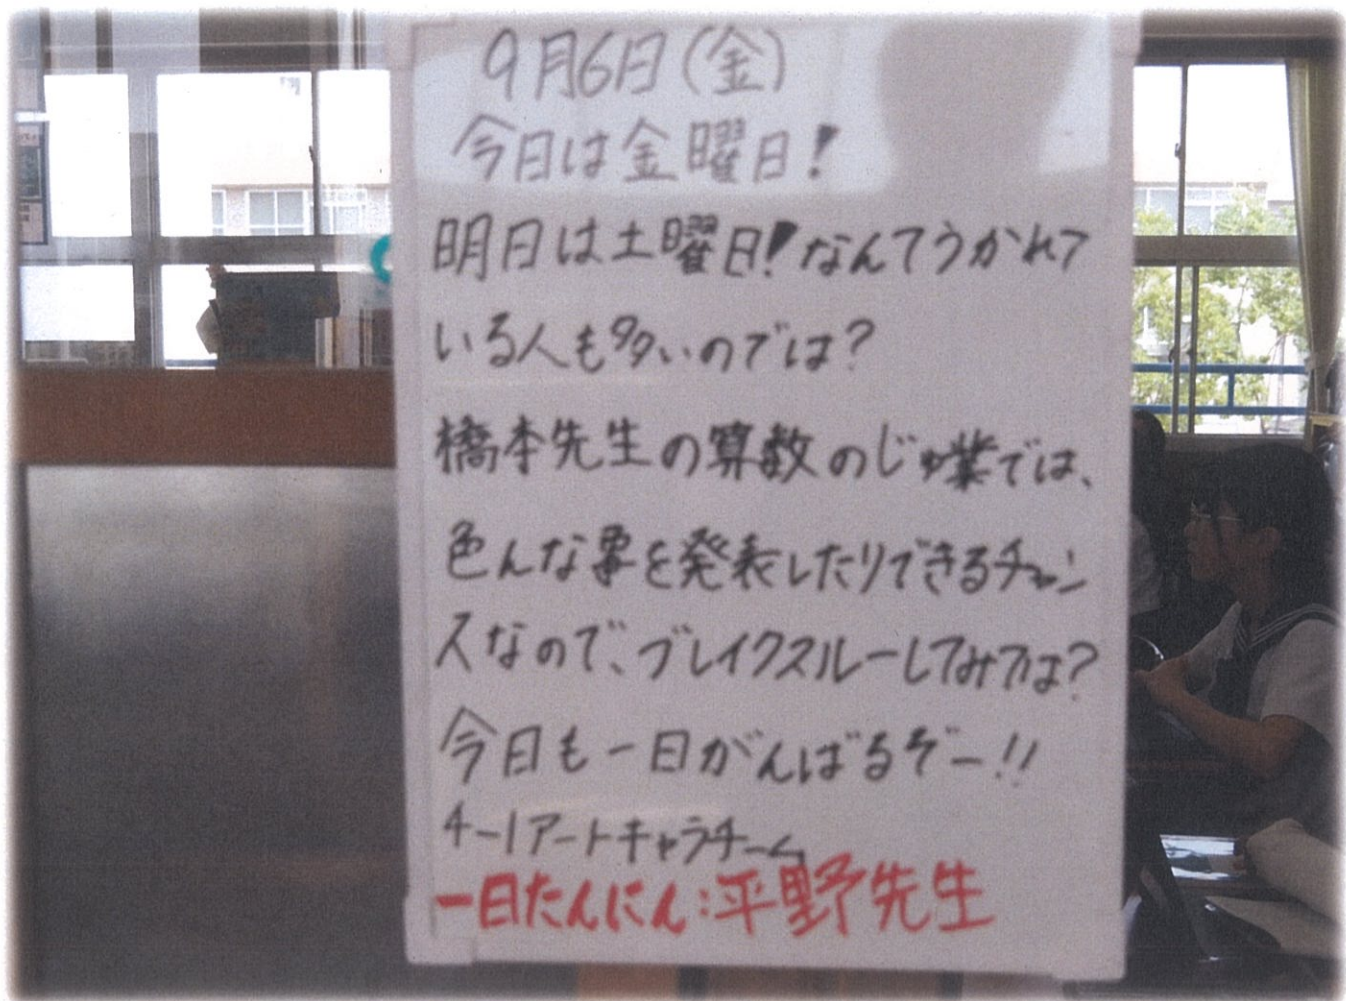 9月6日(金)
今日は金曜日!
明日は土曜日!なんてうかれて
いる人も多いのでは?
橋本先生の算数のじゅ業では、
色んな事を発表したりできるチャン
スなので、ブレイクスルーしてみては?
今日も一日がんばるぞー!!
アートキャラチーム
一日たんにん:平野先生